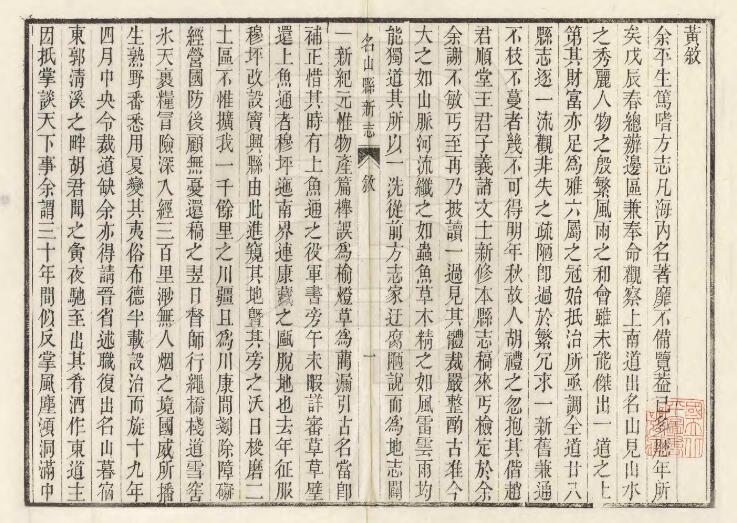 黃敘
余平生篤嗜方志凡海內名著靡不備覽葢已多歷年所
矣戊辰春總辦邊區兼奉命觀察上南道出名山見山水
之秀麗人物之殷繁風雨之和會雖未能傑出一道之上
第其財富亦足為雅六屬之冠始抵治所亟調全道廿八
縣志逐一流觀非失之疏陋卽過於繁冗求一新舊兼通
不枝不蔓者幾不可得明年秋故人胡禮之忽抱其偕趙
君順堂王君子義諸文士新修本縣志稿來丐檢定於余
余謝不敏丐至再乃披讀一過見其體裁嚴整酌古准今
大之如山脈河流纖之如蟲魚草木精之如風雷雲雨均
能獨道其所以一洗從前方志家迂腐陋說而為地志闢
名山縣新志 敘 一
一新紀元惟物產篇櫸誤為榆燈草為藺漏引古名當卽
補正惜其時有上魚通之役軍書旁午未暇詳審草草壁
還上魚通者穆坪迤南界連康藏之甌脫地也去年征服
穆坪改設寶興縣由此進窺其地曁其旁之沃日梭磨二
土區不惟擴我一千餘里之川疆且為川康間剗除障礙
經營國防後顧無憂還稿之翌日督師行繩橋棧道雪窖
氷天裹糧冒險深入經三百里渺無人烟之境國威所播
生熟野番悉用夏變其夷俗布德半載設治而旋十九年
四月中央令裁道缺余亦得請晉省述職復出名山暮宿
東郭清溪之畔胡君聞之夤夜馳至出其肴酒作東道主
因抵掌談天下事余謂三十年間似反掌風塵澒洞滿中